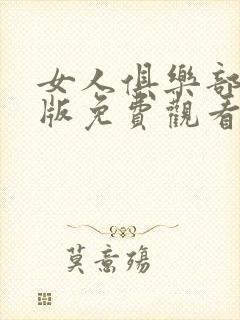 女人俱樂部
版免費觀看
莫意殤